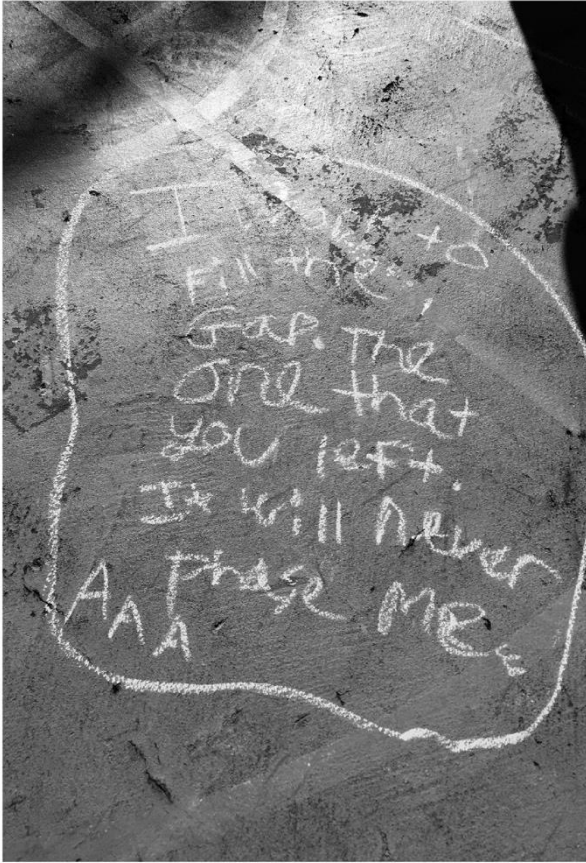 I want to
Fill the
Gap. The
One that
you left.
It will never
Phase Me.
AAA